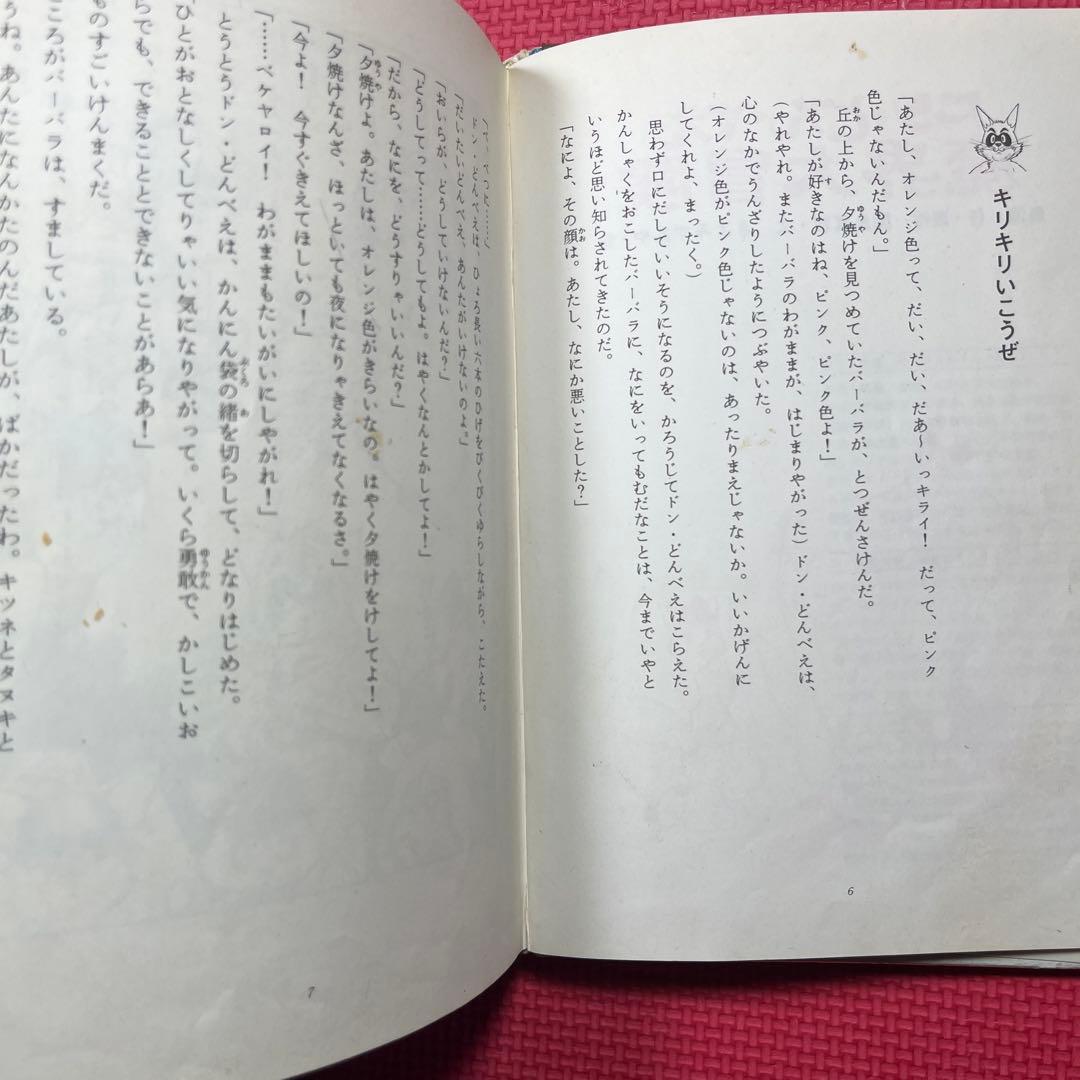 キリキリいこうぜ
「あたし、オレンジ色って、だい、だい、だあ〜いっキライ！　だって、ピンク
色じゃないんだもん。」
丘の上から、夕焼けを見つめていたバーバラが、とつぜんさけんだ。
「あたしが好きなのはね、ピンク、ピンク色よ！」
（やれやれ。またバーバラのわがままが、はじまりやがった）ドン・どんべえは、
心のなかでうんざりしたようにつぶやいた。
（オレンジ色がピンク色じゃないのは、あったりまえじゃないか。いいかげんに
してくれよ、まったく。）
思わず口にだしていいそうになるのを、かろうじてドン・どんべえはこらえた。
かんしゃくをおこしたバーバラに、なにをいってもむだなことは、今までいやと
いうほど思い知らされてきたのだ。
「なによ、その顔は。あたし、なにか悪いことした？」
6
「べ、べつに……」
ドン・どんべえは、ひょろ長い六本のひげをぴくぴくゆらしながら、こたえた。
「だいたいどんべえ、あんたがいけないのよ。」
「おいらが、どうしていけないんだ？」
「どうしてって……どうしてもよ。はやくなんとかしてよ！」
「だから、なにを、どうすりゃいいんだ？」
「夕焼けよ。あたしは、オレンジ色がきらいなの。はやく夕焼けをけしてよ！」
「夕焼けなんざ、ほっといても夜になりゃきえてなくなるさ。」
「今よ！　今すぐきえてほしいの！」
「……ベケヤロイ！　わがままもたいがいにしやがれ！」
とうとうドン・どんべえは、かんにん袋の緒を切らして、どなりはじめた。
ひとがおとなしくしてりゃいい気になりやがって。いくら勇敢で、かしこいお
らでも、できることとできないことがあらあ！」
ものすごいけんまくだ。
ころがバーバラは、すましている。
うね。あんたになんかたのんだあたしが、ばかだったわ。キツネとタヌキと
7